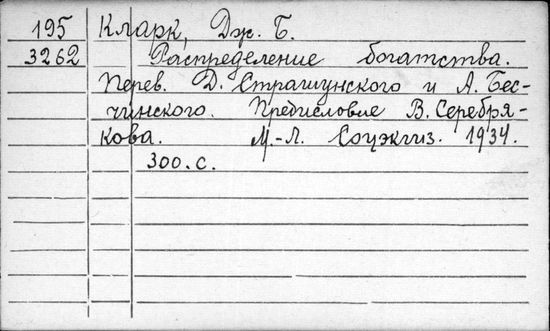 195 Кларк, Дж. Б.
3262 Распределение богатства.
Перев. Д. Страшунского и А. Бес-
чинского. Предисловие В. Серебря-
кова. М.-Л. Соцэкгиз. 1934.
300. с.